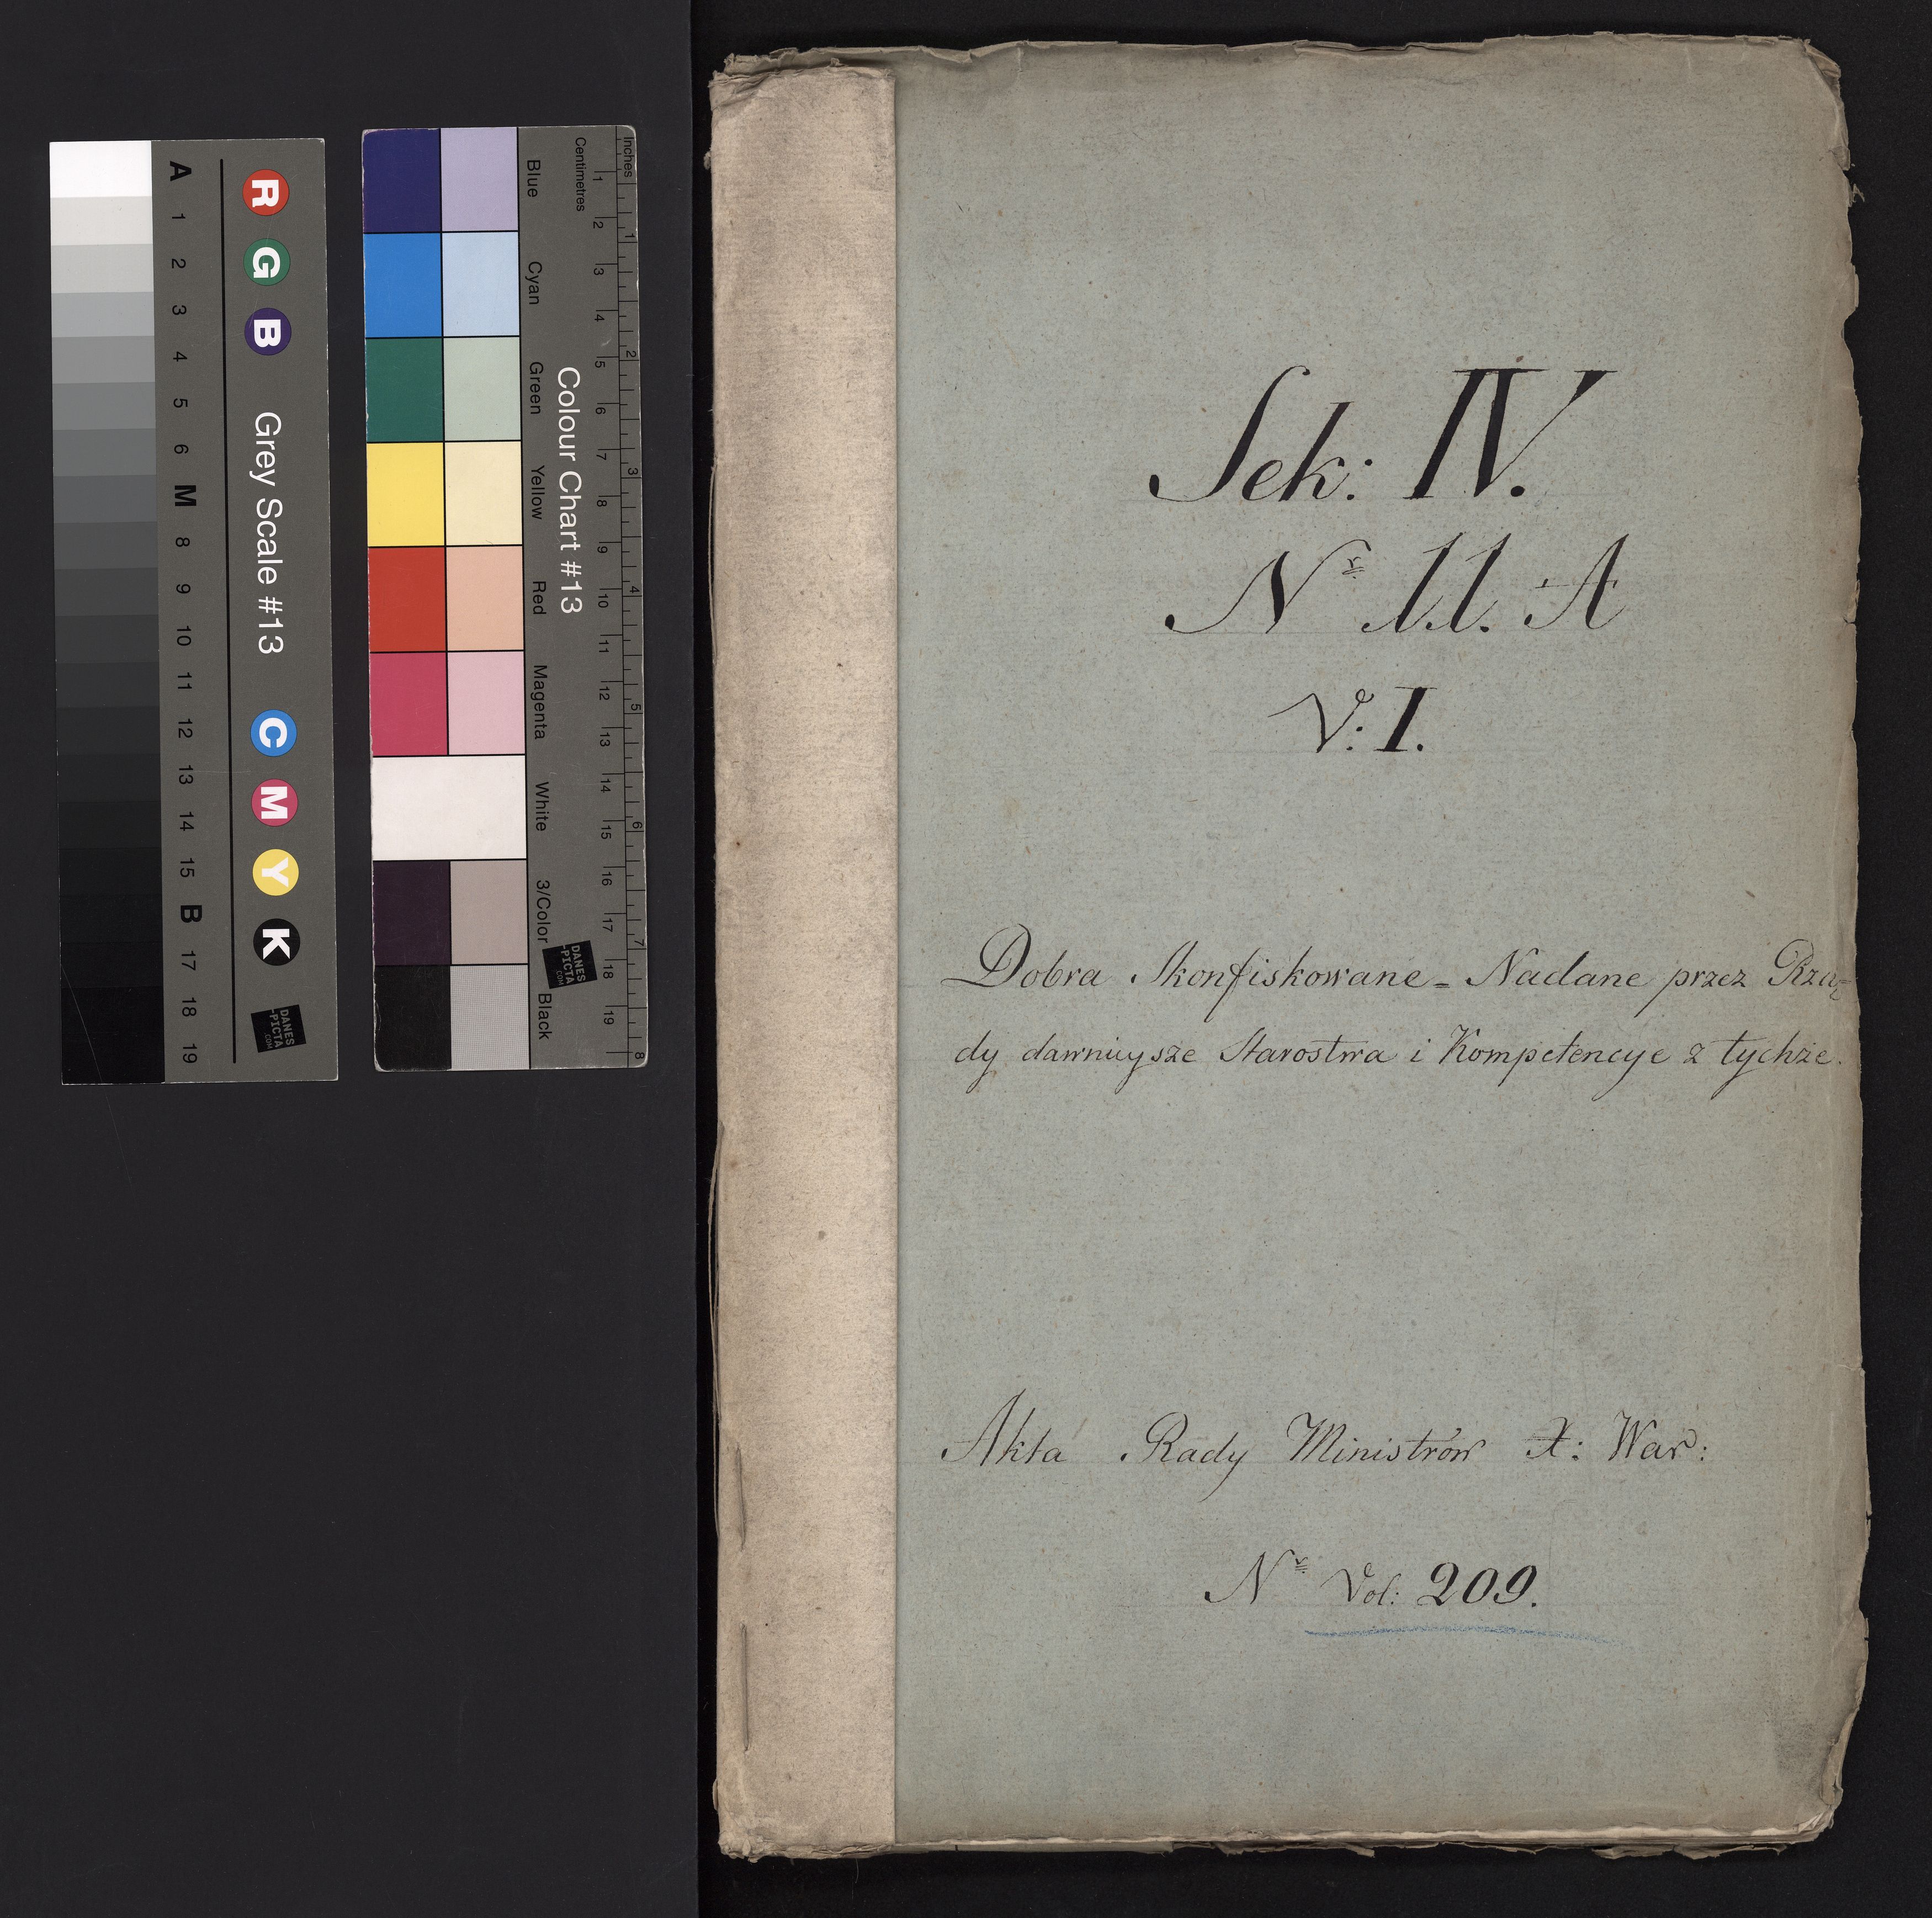 Sek: IV.
Nr 11. A
V: I.
Dobra Skonfiskowane - Nadane przez Rzą-
dy dawnieysze Starostwa i Kompetencye z tychże.
Akta Rady Ministrów X: War:
Nr Vol: 209.
A 1 2 3 4 5 6 M 8 9 10 11 12 13 14 15 B 17 18 19
R G B Grey Scale #13 C M Y K
DANES
-PICTA
.COM
Blue Cyan Green Yellow Red Magenta White 3/Color Black
Colour Chart #13
DANES
-PICTA
.COM
Centimetres 1 2 3 4 5 6 7 8 9 10 11 12 13 14 15 16 17 18 19
Inches 1 2 3 4 5 6 7 8